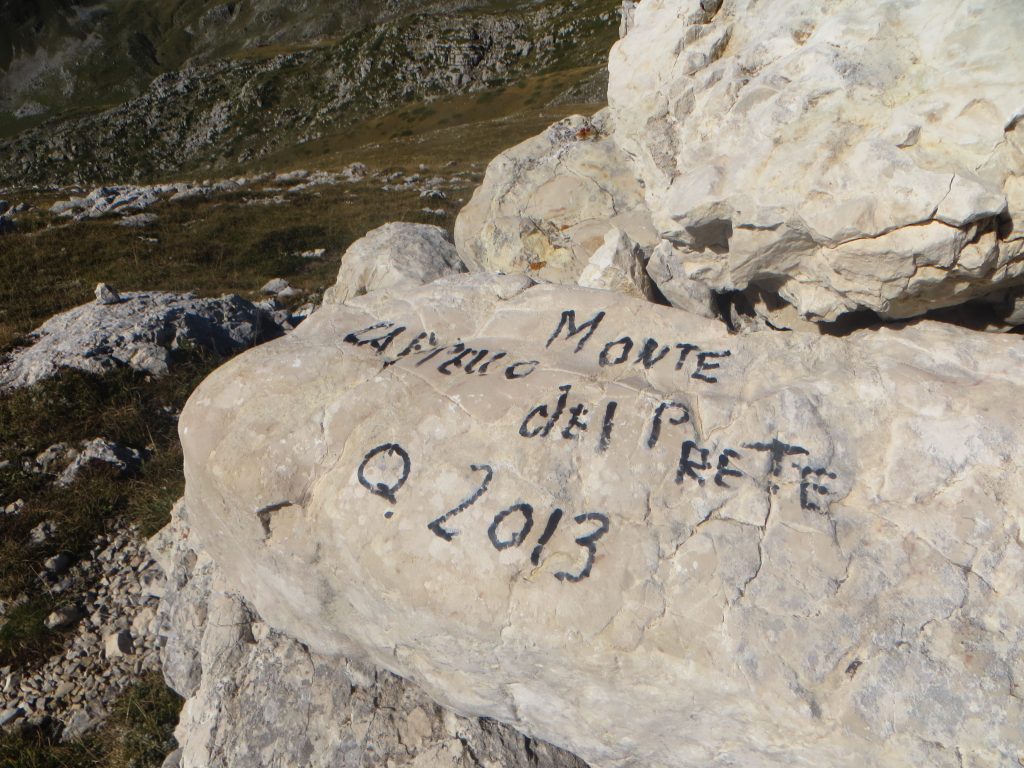 CAPPELLO MONTE
del PRETE
Q 2013